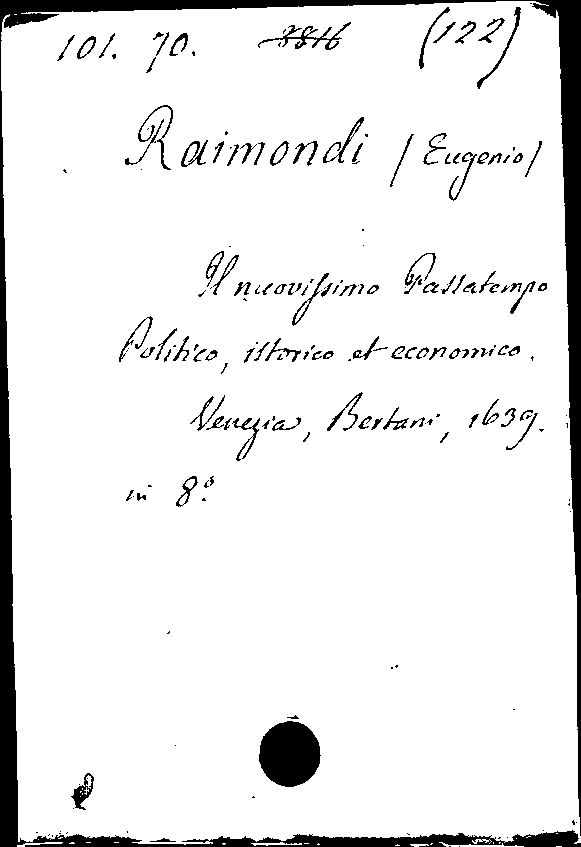 101. 70. 3816 (122)
Raimondi / Eugenio /
Il nuovissimo Passatempo
Politico, istorico et economico.
Venezia, Bertani, 1639.
in 8.º